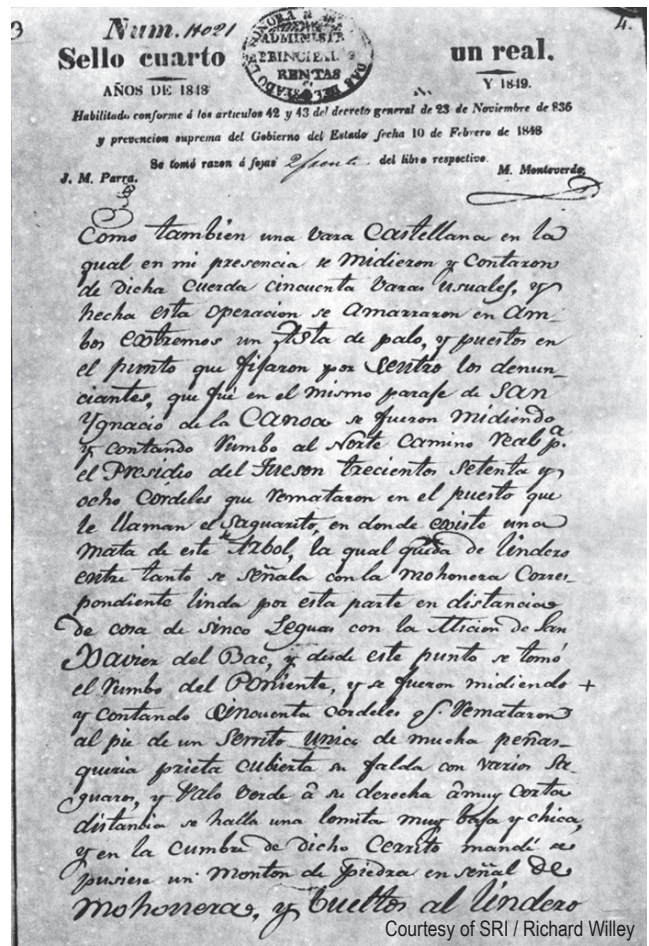 Num. 11021
4.
Sello cuarto
un real.
AÑOS DE 1848
Y 1849.
ADMINISTR
PRINCIPAL
RENTAS
Habilitado conforme á los articulos 42 y 43 del decreto general de 23 de Noviembre de 836
y prevencion suprema del Gobierno del Estado fecha 10 de Febrero de 1848
Se tomó razon á fojas 2 frente del libro respectivo.
J. M. Parra.
M. Monteverde,
Como tambien una vara Castellana en la
qual en mi presencia se midieron y Contaron
de dicha Cuerda cincuenta varas usuales, y
hecha esta operacion se Amarraron en am-
bos estremos un Asta de palo, y puestos en
el punto que fijaron por Sentro los denun-
ciantes, que fué en el mismo paraje de San
Ygnacio de la Canoa se fueron midiendo
y contando Rumbo al Norte Camino Real pa.
el Presidio del Tucson trecientos setenta y
ocho Cordeles que remataron en el puesto que
le llaman el saguarito, en donde existe una
mata de este Arbol, la qual queda de lindero
entre tanto se señala con la mohonera Corres-
pondiente linda por esta parte en distancia
de cosa de sinco Leguas con la Micion de San
Xavier del Bac, y desde este punto se tomó
el Rumbo del Poniente, y se fueron midiendo +
y contando Cincuenta cordeles q. Remataron
al pie de un Serrito unico de mucha peñas-
queria prieta cubierta su falda con varios Sa-
guaros, y Palo verde â su derecha â muy corta
distancia se halla una lomita muy baja y chica,
y en la cumbre de dicho Cerrito mandé se
pusiese un monton de piedra en señal de
mohonera, y bueltos al lindero
Courtesy of SRI / Richard Willey